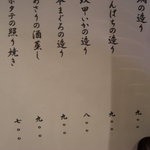 の造り
んぱちの造り 九〇〇
いかの造り 八〇〇
まぐろの造り 九〇〇
あさりの酒蒸し 九〇〇
ホタテの照り焼き 七〇〇